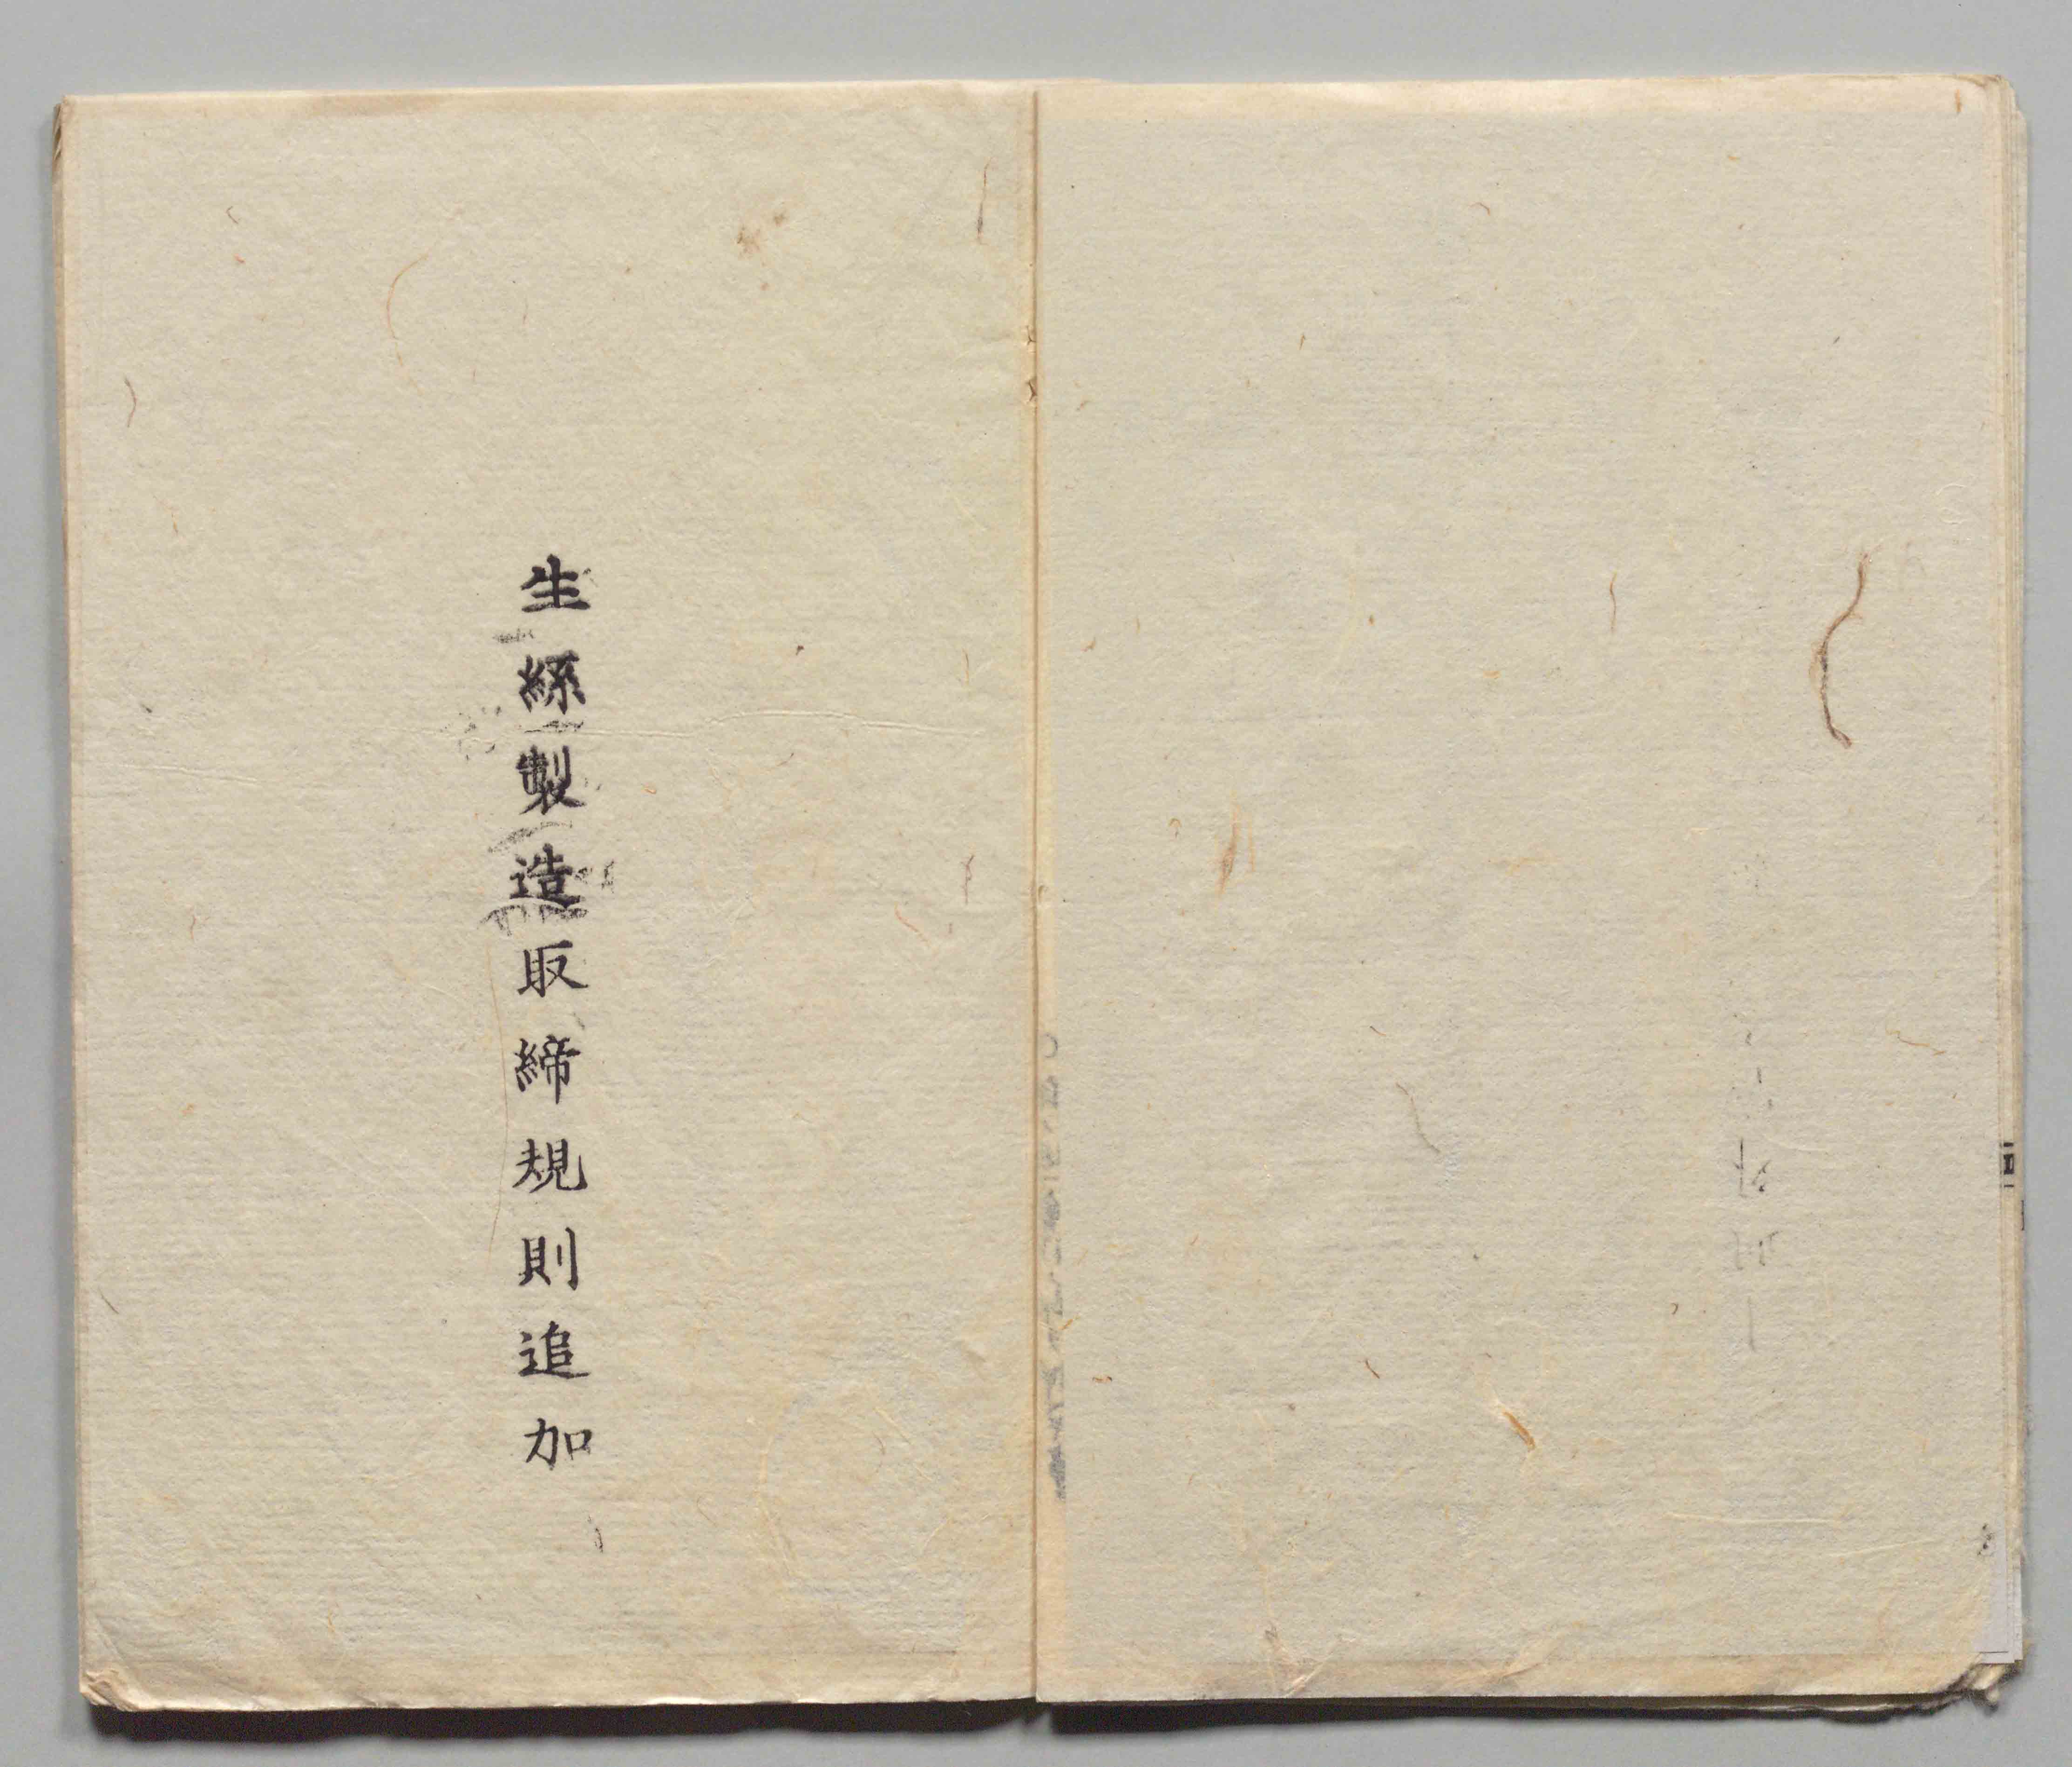 生絲製造取締規則追加